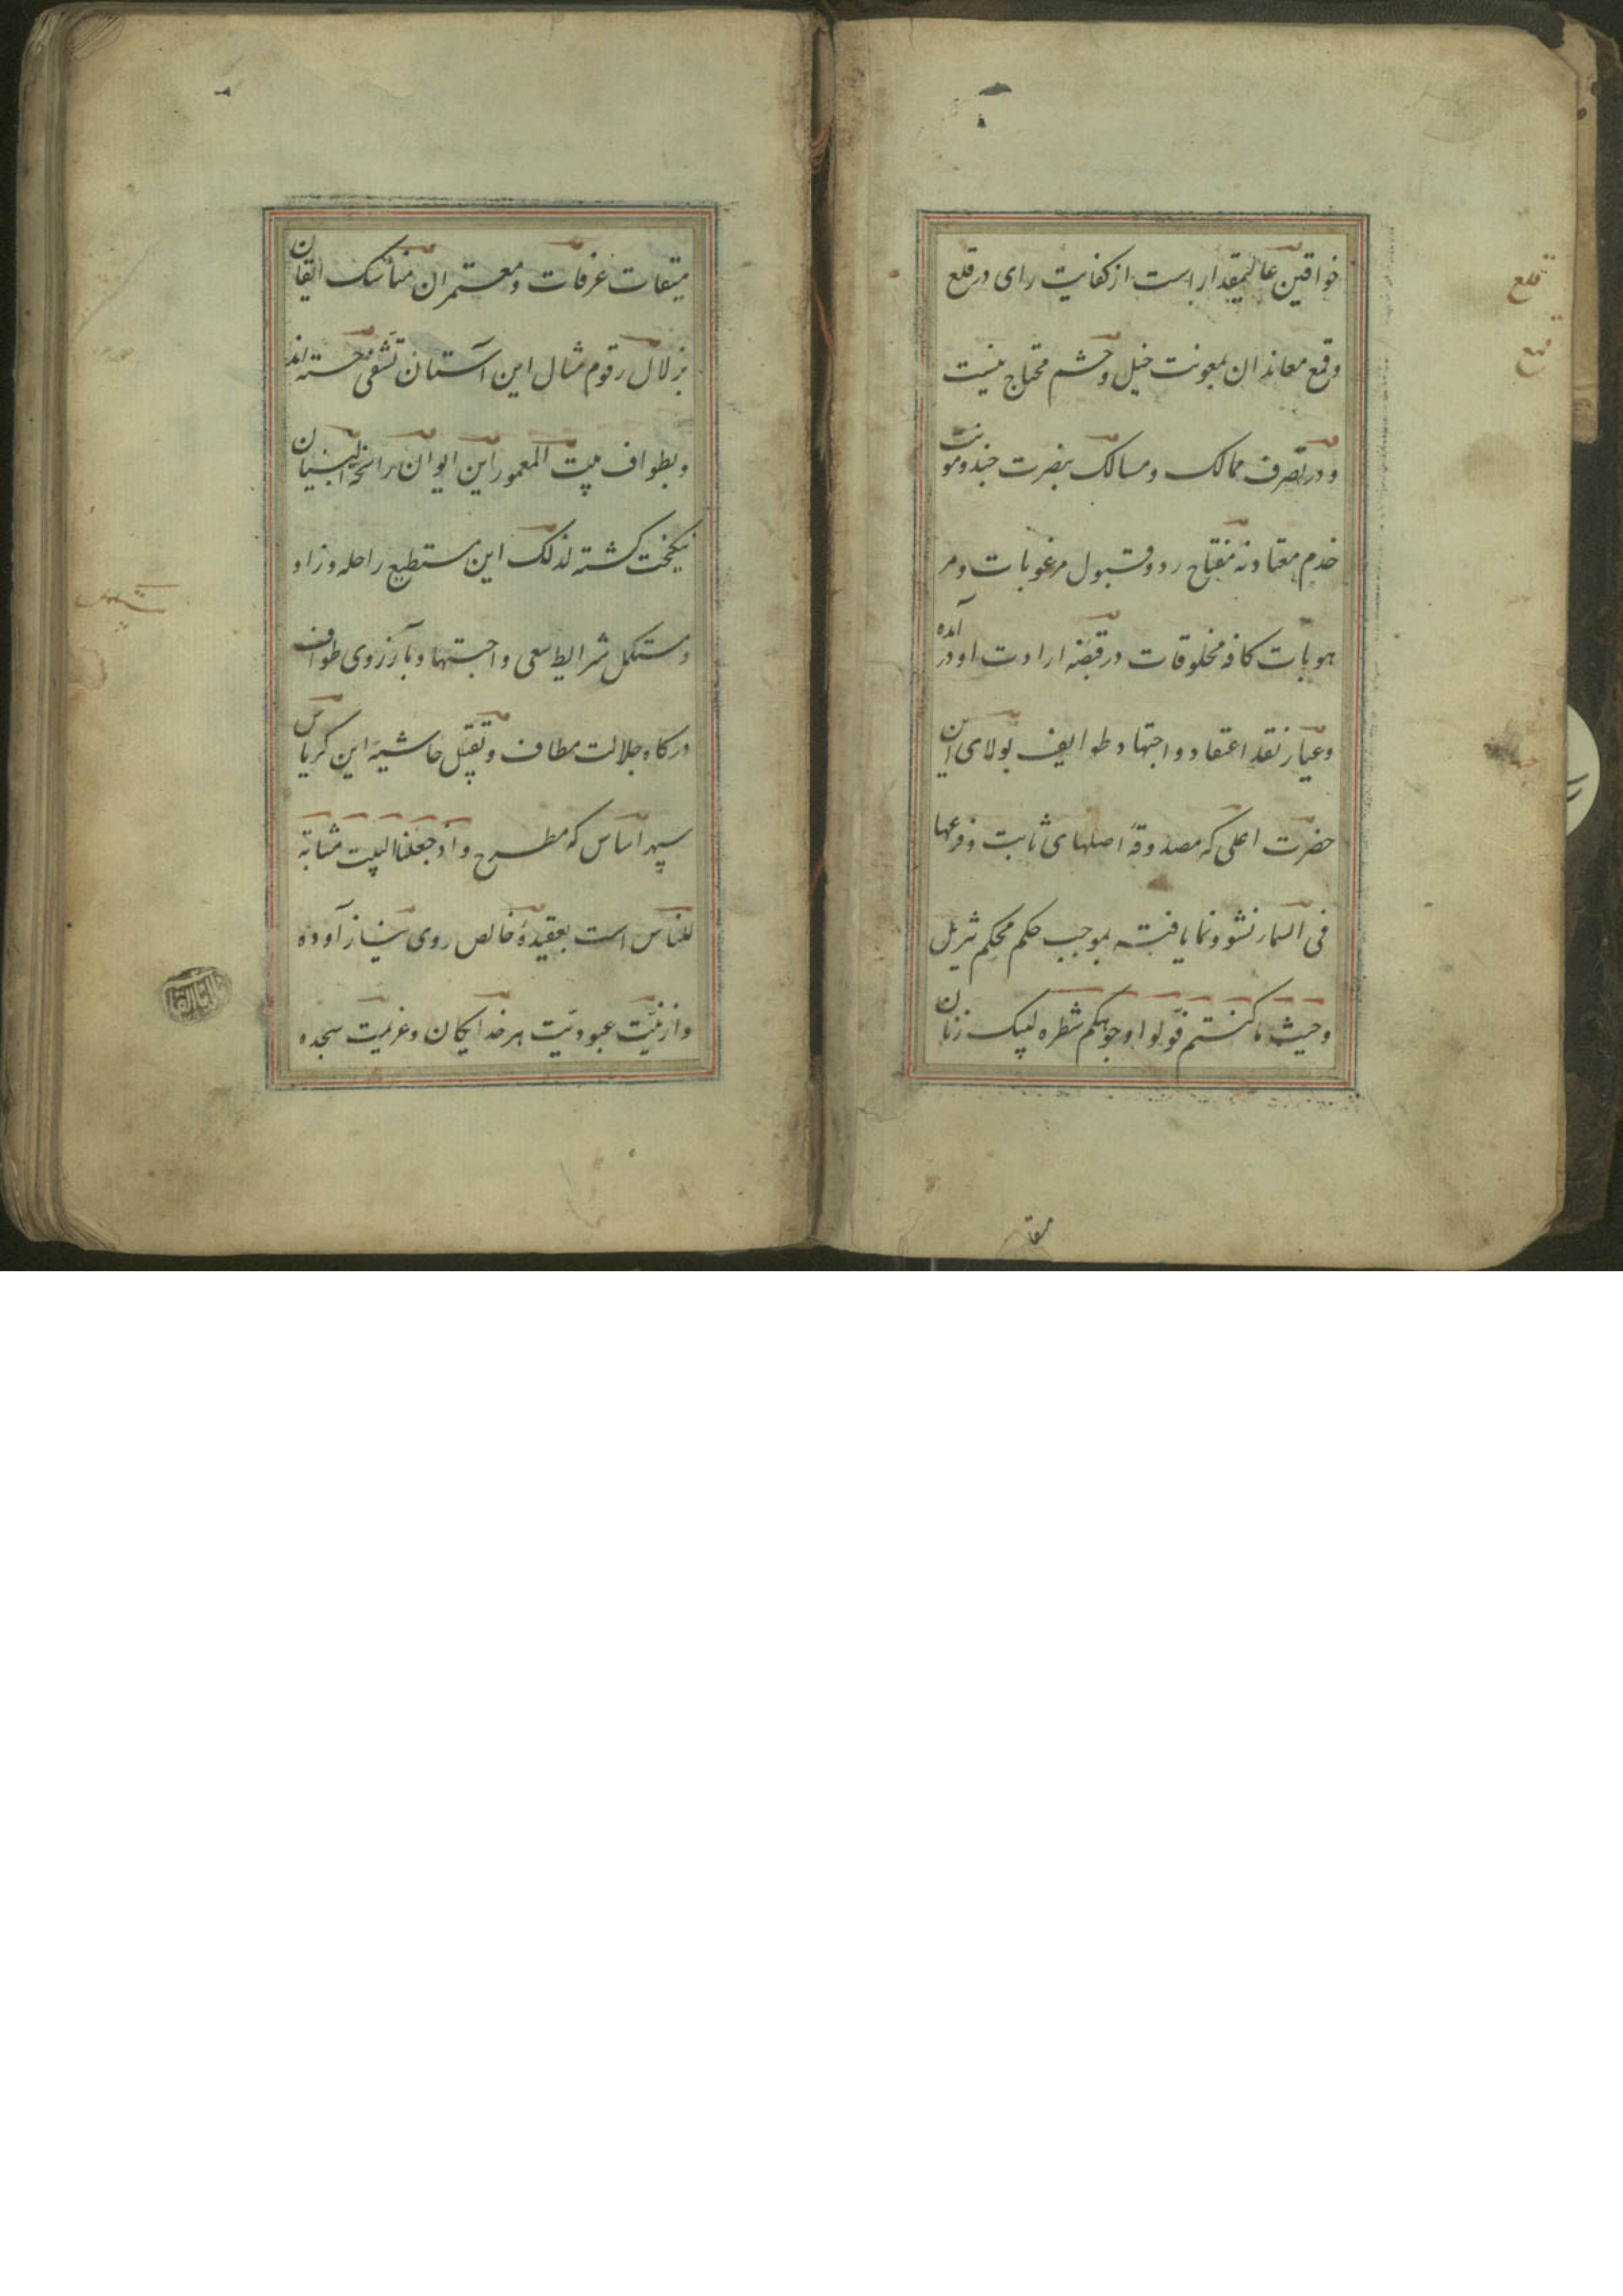 خواقین عالیمقدار است از کفایت رای در قلع
وقمع معاندان بمعونت خیل وحشم محتاج نیست
ودر تصرف ممالک ومسالک بنصرت جند ومونت
خدم معتاد نه مفتاح رد وقبول مرغوبات ومر
هوبات کافه مخلوقات در قبضه ارادت او درآمده
وعیار نقد اعتقاد واجتهاد طوایف بولای این
حضرت اعلی که مصدوقهٔ اصلهای ثابت وفرعها
فی السمار نشو ونما یافته بموجب حکم محکم تنزیل
وحیث ما کنتم فولوا وجوهکم شطره لبیک زنان
میقا
قلع
میقات عرفات ومعتمران مناسک ایقان
بزلال رقوم مثال این آستان تشفی جسته اند
وبطواف بیت المعمور این ایوان راسخ البنیان
نیکبخت کشته لذلک این مستطیع راحله وزاد
ومستکمل شرایط سعی واجتهاد بآرزوی طواف
درکاه جلالت مطاف وتقبیل حاشیه این کریاس
سپهر اساس که مطرح واذ جعلنا البیت مثابة
للناس است بعقیدهٔ خالص روی نیاز آورده
واز نیّت عبودیّت هر خدایکان وعزیمت سجده